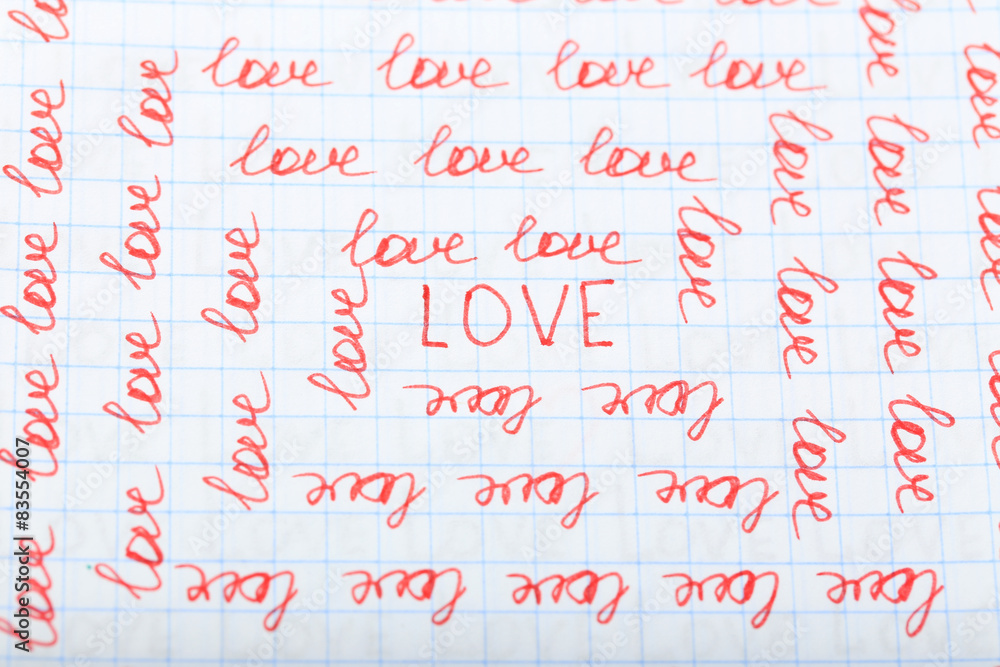 love love love love
love love love
love love
LOVE
love love
love love love
love love love love love
love love love love
love love love love
love love
love
love
love love love
love love love love
love
Adobe Stock | #83554007